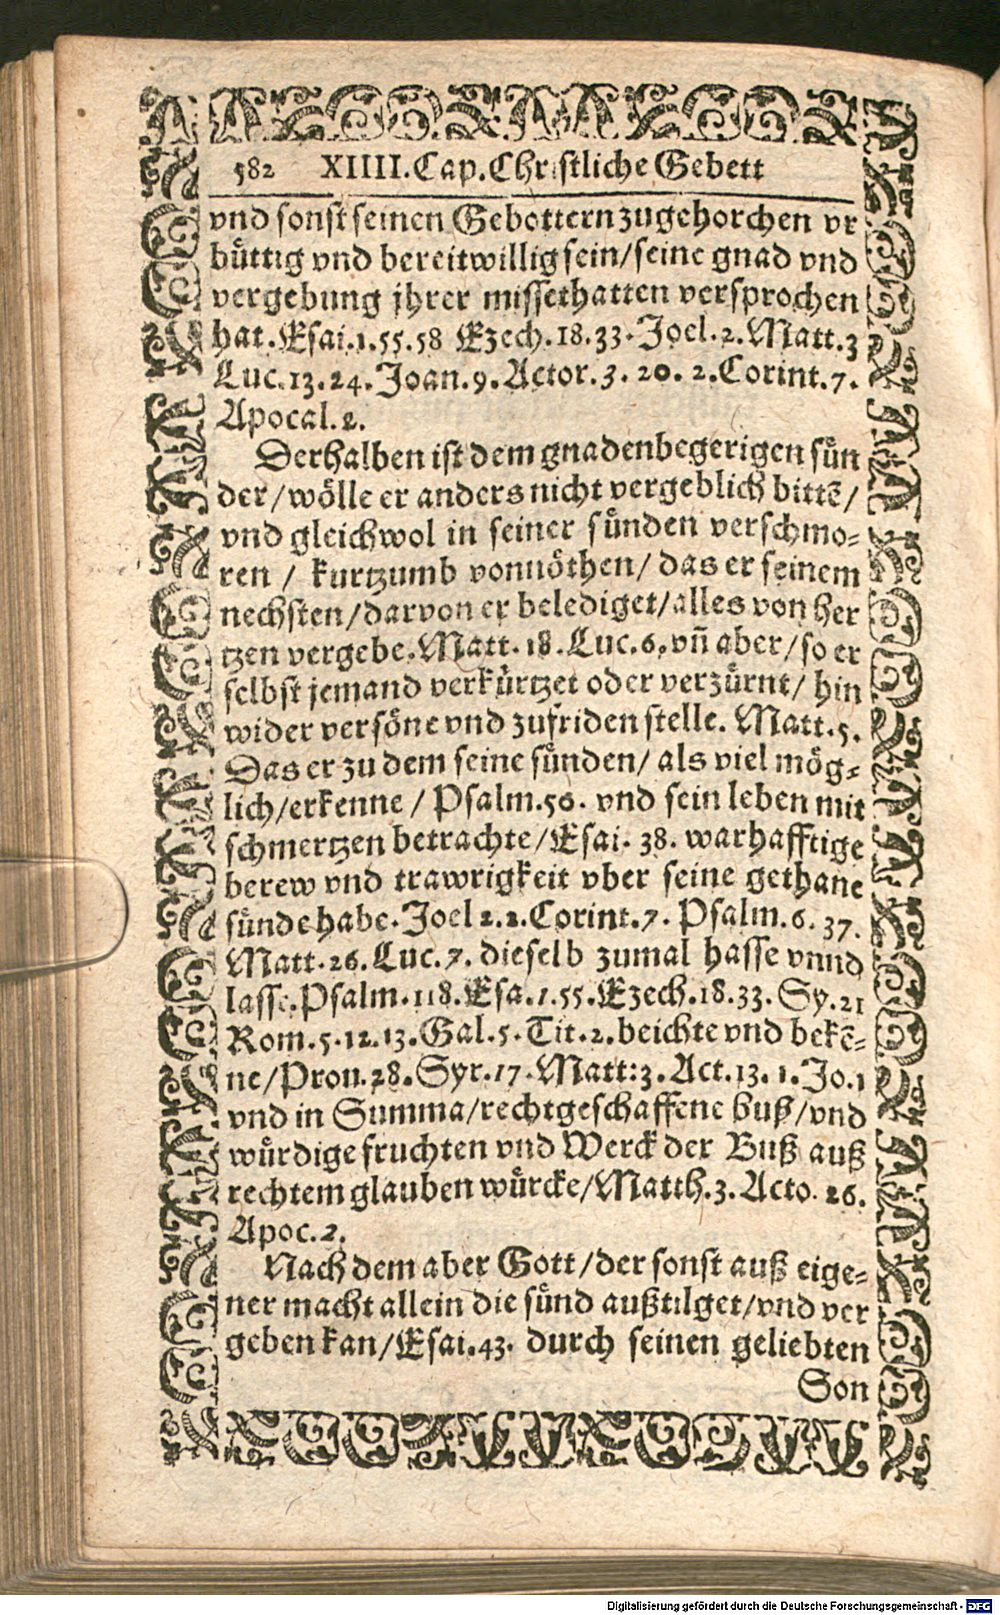 582 XIIII.Cap.Christliche Gebett
vnd sonst seinen Gebottern zugehorchen vr
büttig vnd bereitwillig sein/seine gnad vnd
vergebung jhrer missethatten versprochen
hat.Esai.1.55.58 Ezech.18.33.Joel.2.Matt.3
Luc.13.24.Joan.9.Actor.3.20.2.Corint.7.
Apocal.2.
Derhalben ist dem gnadenbegerigen sün
der/wölle er anders nicht vergeblich bittē/
vnd gleichwol in seiner sünden verschmo-
ren / kurtzumb vonnöthen/das er seinem
nechsten/darvon er belediget/alles von her
tzen vergebe.Matt.18.Luc.6.vn̄ aber/so er
selbst jemand verkürtzet oder verzürnt/hin
wider versöne vnd zufriden stelle. Matt.5.
Das er zu dem seine sünden/ als viel mög-
lich/erkenne / Psalm.50. vnd sein leben mit
schmertzen betrachte/Esai. 38. warhafftige
berew vnd trawrigkeit vber seine gethane
sünde habe.Joel 2.2.Corint.7. Psalm.6.37.
Matt.26.Luc.7. dieselb zumal hasse vnnd
lasse.Psalm.118.Esa.1.55.Ezech.18.33.Sy.21
Rom.5.12.13.Gal.5.Tit.2.beichte vnd bekē-
ne/Prou.28.Syr.17.Matt:3.Act.13.1.Jo.1
vnd in Summa/rechtgeschaffene buß/vnd
würdige fruchten vnd Werck der Buß auß
rechtem glauben würcke/Matth.3.Acto.26.
Apoc.2.
Nach dem aber Gott/der sonst auß eige-
ner macht allein die sünd außtilget/vnd ver
geben kan/Esai.43. durch seinen geliebten
Son
Digitalisierung gefördert durch die Deutsche Forschungsgemeinschaft - DFG